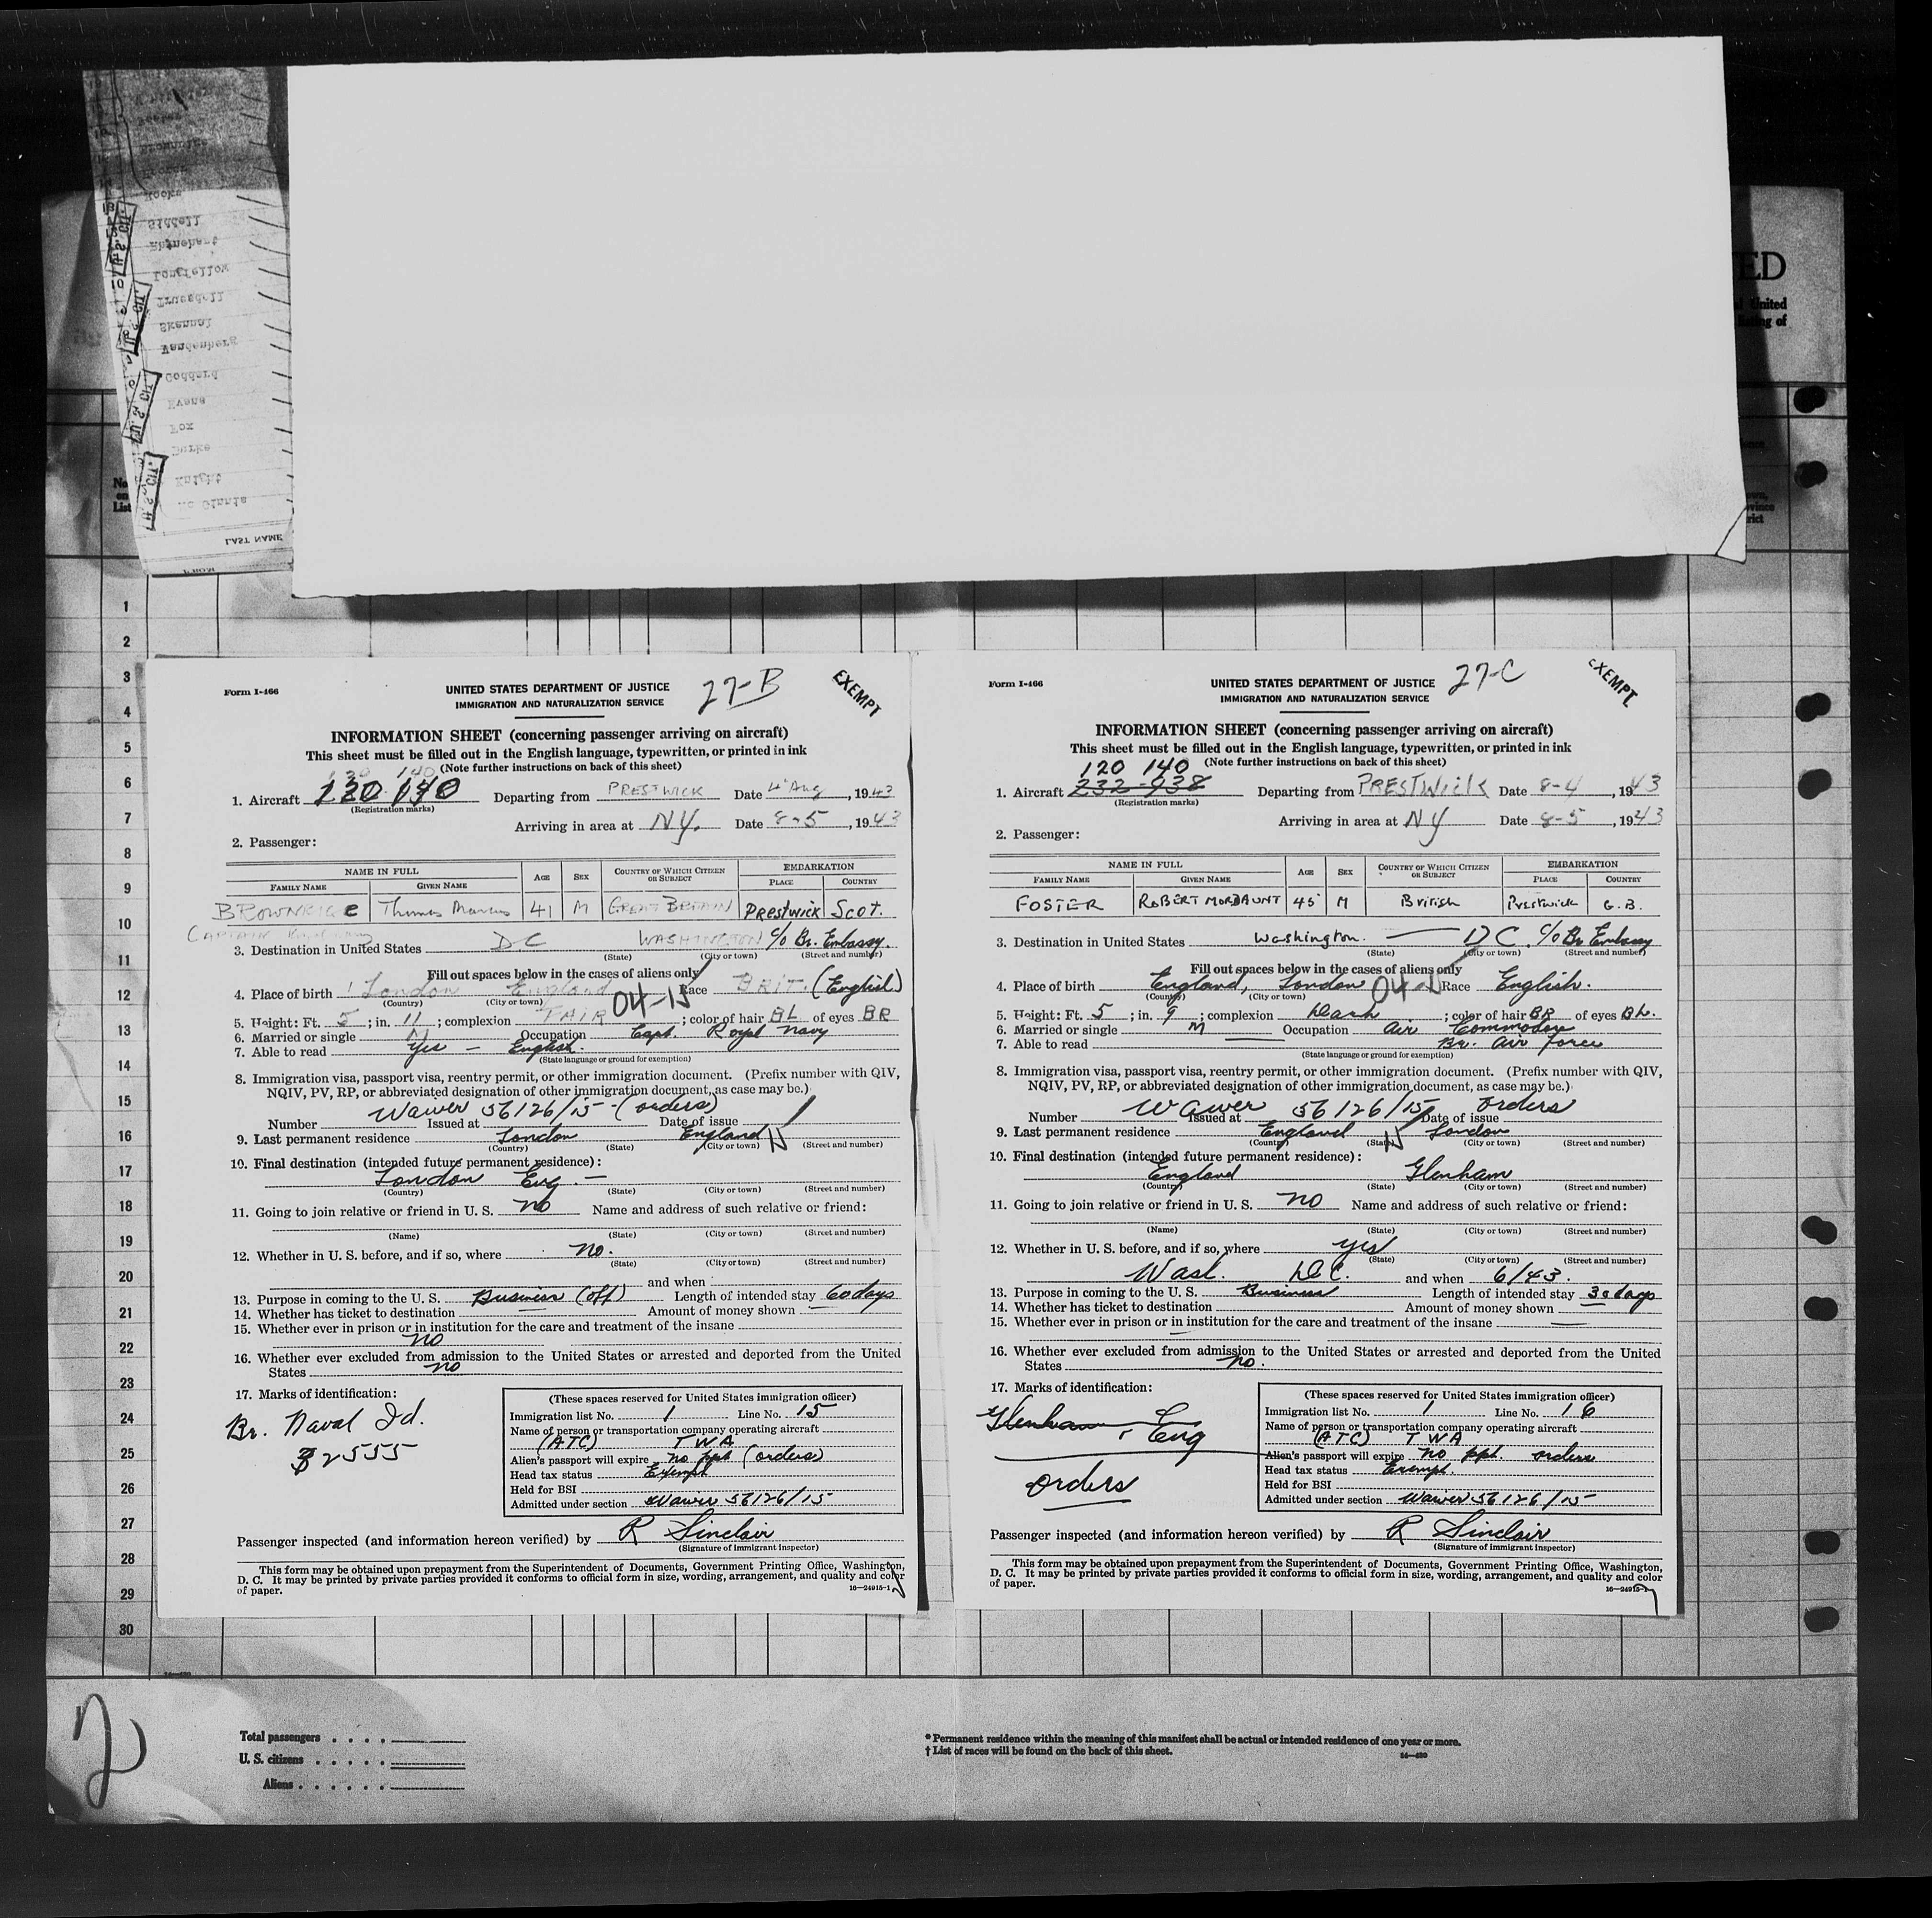 LAST NAME
ED
United
1
2
3
4
5
6
7
8
9
10
11
12
13
14
15
16
17
18
19
20
21
22
23
24
25
26
27
28
29
30
Form I-466
27-B
EXEMPT
UNITED STATES DEPARTMENT OF JUSTICE
IMMIGRATION AND NATURALIZATION SERVICE
INFORMATION SHEET (concerning passenger arriving on aircraft)
This sheet must be filled out in the English language, typewritten, or printed in ink
(Note further instructions on back of this sheet)
1. Aircraft 120 140 Departing from PRESTWICK Date 4 Aug, 1943
(Registration marks)
Arriving in area at NY. Date 8-5, 1943
2. Passenger:
NAME IN FULL AGE SEX COUNTRY OF WHICH CITIZEN OR SUBJECT EMBARKATION
FAMILY NAME GIVEN NAME PLACE COUNTRY
Thomas Marcus 41 M GREAT BRITAIN Prestwick Scot.
CAPTAIN
3. Destination in United States DC WASHINGTON c/o Br. Embassy.
(State) (City or town) (Street and number)
Fill out spaces below in the cases of aliens only
4. Place of birth London England 04-N Race BRIT. (English)
(Country) (City or town)
5. Height: Ft. 5; in. 11; complexion FAIR; color of hair BL of eyes BR
6. Married or single M Occupation Capt. Royal Navy
7. Able to read Yes — English.
(State language or ground for exemption)
8. Immigration visa, passport visa, reentry permit, or other immigration document. (Prefix number with QIV,
NQIV, PV, RP, or abbreviated designation of other immigration document, as case may be.)
Number Waiver 56126/15 - (orders) Issued at Date of issue
9. Last permanent residence London England
(Country) (State) (City or town) (Street and number)
10. Final destination (intended future permanent residence):
London Eng. —
(Country) (State) (City or town) (Street and number)
11. Going to join relative or friend in U. S. no Name and address of such relative or friend:
(Name) (State) (City or town) (Street and number)
12. Whether in U. S. before, and if so, where no.
(State) (City or town) (Street and number)
and when
13. Purpose in coming to the U. S. Business (off) Length of intended stay 60 days
14. Whether has ticket to destination — Amount of money shown —
15. Whether ever in prison or in institution for the care and treatment of the insane
no
16. Whether ever excluded from admission to the United States or arrested and deported from the United
States no
17. Marks of identification:
Br. Naval Id.
32555
(These spaces reserved for United States immigration officer)
Immigration list No. 1 Line No. 15
Name of person or transportation company operating aircraft
(ATC) TWA
Alien's passport will expire no ppt (orders)
Head tax status Exempt
Held for BSI
Admitted under section Waiver 56126/15
Passenger inspected (and information hereon verified) by R Sinclair
(Signature of Immigrant Inspector)
This form may be obtained upon prepayment from the Superintendent of Documents, Government Printing Office, Washington,
D. C. It may be printed by private parties provided it conforms to official form in size, wording, arrangement, and quality and color
of paper.
16—24915-1
Form I-466
27-C
EXEMPT
UNITED STATES DEPARTMENT OF JUSTICE
IMMIGRATION AND NATURALIZATION SERVICE
INFORMATION SHEET (concerning passenger arriving on aircraft)
This sheet must be filled out in the English language, typewritten, or printed in ink
(Note further instructions on back of this sheet)
120 140
1. Aircraft 232-938 Departing from PRESTWICK Date 8-4, 1943
(Registration marks)
Arriving in area at NY Date 8-5, 1943
2. Passenger:
NAME IN FULL AGE SEX COUNTRY OF WHICH CITIZEN OR SUBJECT EMBARKATION
FAMILY NAME GIVEN NAME PLACE COUNTRY
FOSTER ROBERT MORDAUNT 45 M British Prestwick G.B.
3. Destination in United States Washington. — DC. c/o Br Embassy
(State) (City or town) (Street and number)
Fill out spaces below in the cases of aliens only
4. Place of birth England, London 04-N Race English.
(Country) (City or town)
5. Height: Ft. 5; in. 9; complexion Dark; color of hair BR of eyes BL.
6. Married or single M Occupation Air Commodore
7. Able to read Br. Air Force
(State language or ground for exemption)
8. Immigration visa, passport visa, reentry permit, or other immigration document. (Prefix number with QIV,
NQIV, PV, RP, or abbreviated designation of other immigration document, as case may be.)
Number Waiver 56126/15 orders Issued at Date of issue
9. Last permanent residence England London
(Country) (State) (City or town) (Street and number)
10. Final destination (intended future permanent residence):
England Glenham
(Country) (State) (City or town) (Street and number)
11. Going to join relative or friend in U. S. no Name and address of such relative or friend:
(Name) (State) (City or town) (Street and number)
12. Whether in U. S. before, and if so, where yes
(State) (City or town) (Street and number)
Wash. D.C. and when 6/43.
13. Purpose in coming to the U. S. Business Length of intended stay 30 days
14. Whether has ticket to destination Amount of money shown —
15. Whether ever in prison or in institution for the care and treatment of the insane —
16. Whether ever excluded from admission to the United States or arrested and deported from the United
States no.
17. Marks of identification:
Glenham, Eng
orders
(These spaces reserved for United States immigration officer)
Immigration list No. 1 Line No. 16
Name of person or transportation company operating aircraft
(ATC) TWA
Alien's passport will expire no ppt. orders
Head tax status Exempt.
Held for BSI
Admitted under section Waiver 56126/15
Passenger inspected (and information hereon verified) by R Sinclair
(Signature of Immigrant Inspector)
This form may be obtained upon prepayment from the Superintendent of Documents, Government Printing Office, Washington,
D. C. It may be printed by private parties provided it conforms to official form in size, wording, arrangement, and quality and color
of paper.
16—24915-1
Total passengers . . . .
U. S. citizens . . . . .
Aliens . . . . . .
* Permanent residence within the meaning of this manifest shall be actual or intended residence of one year or more.
† List of races will be found on the back of this sheet.